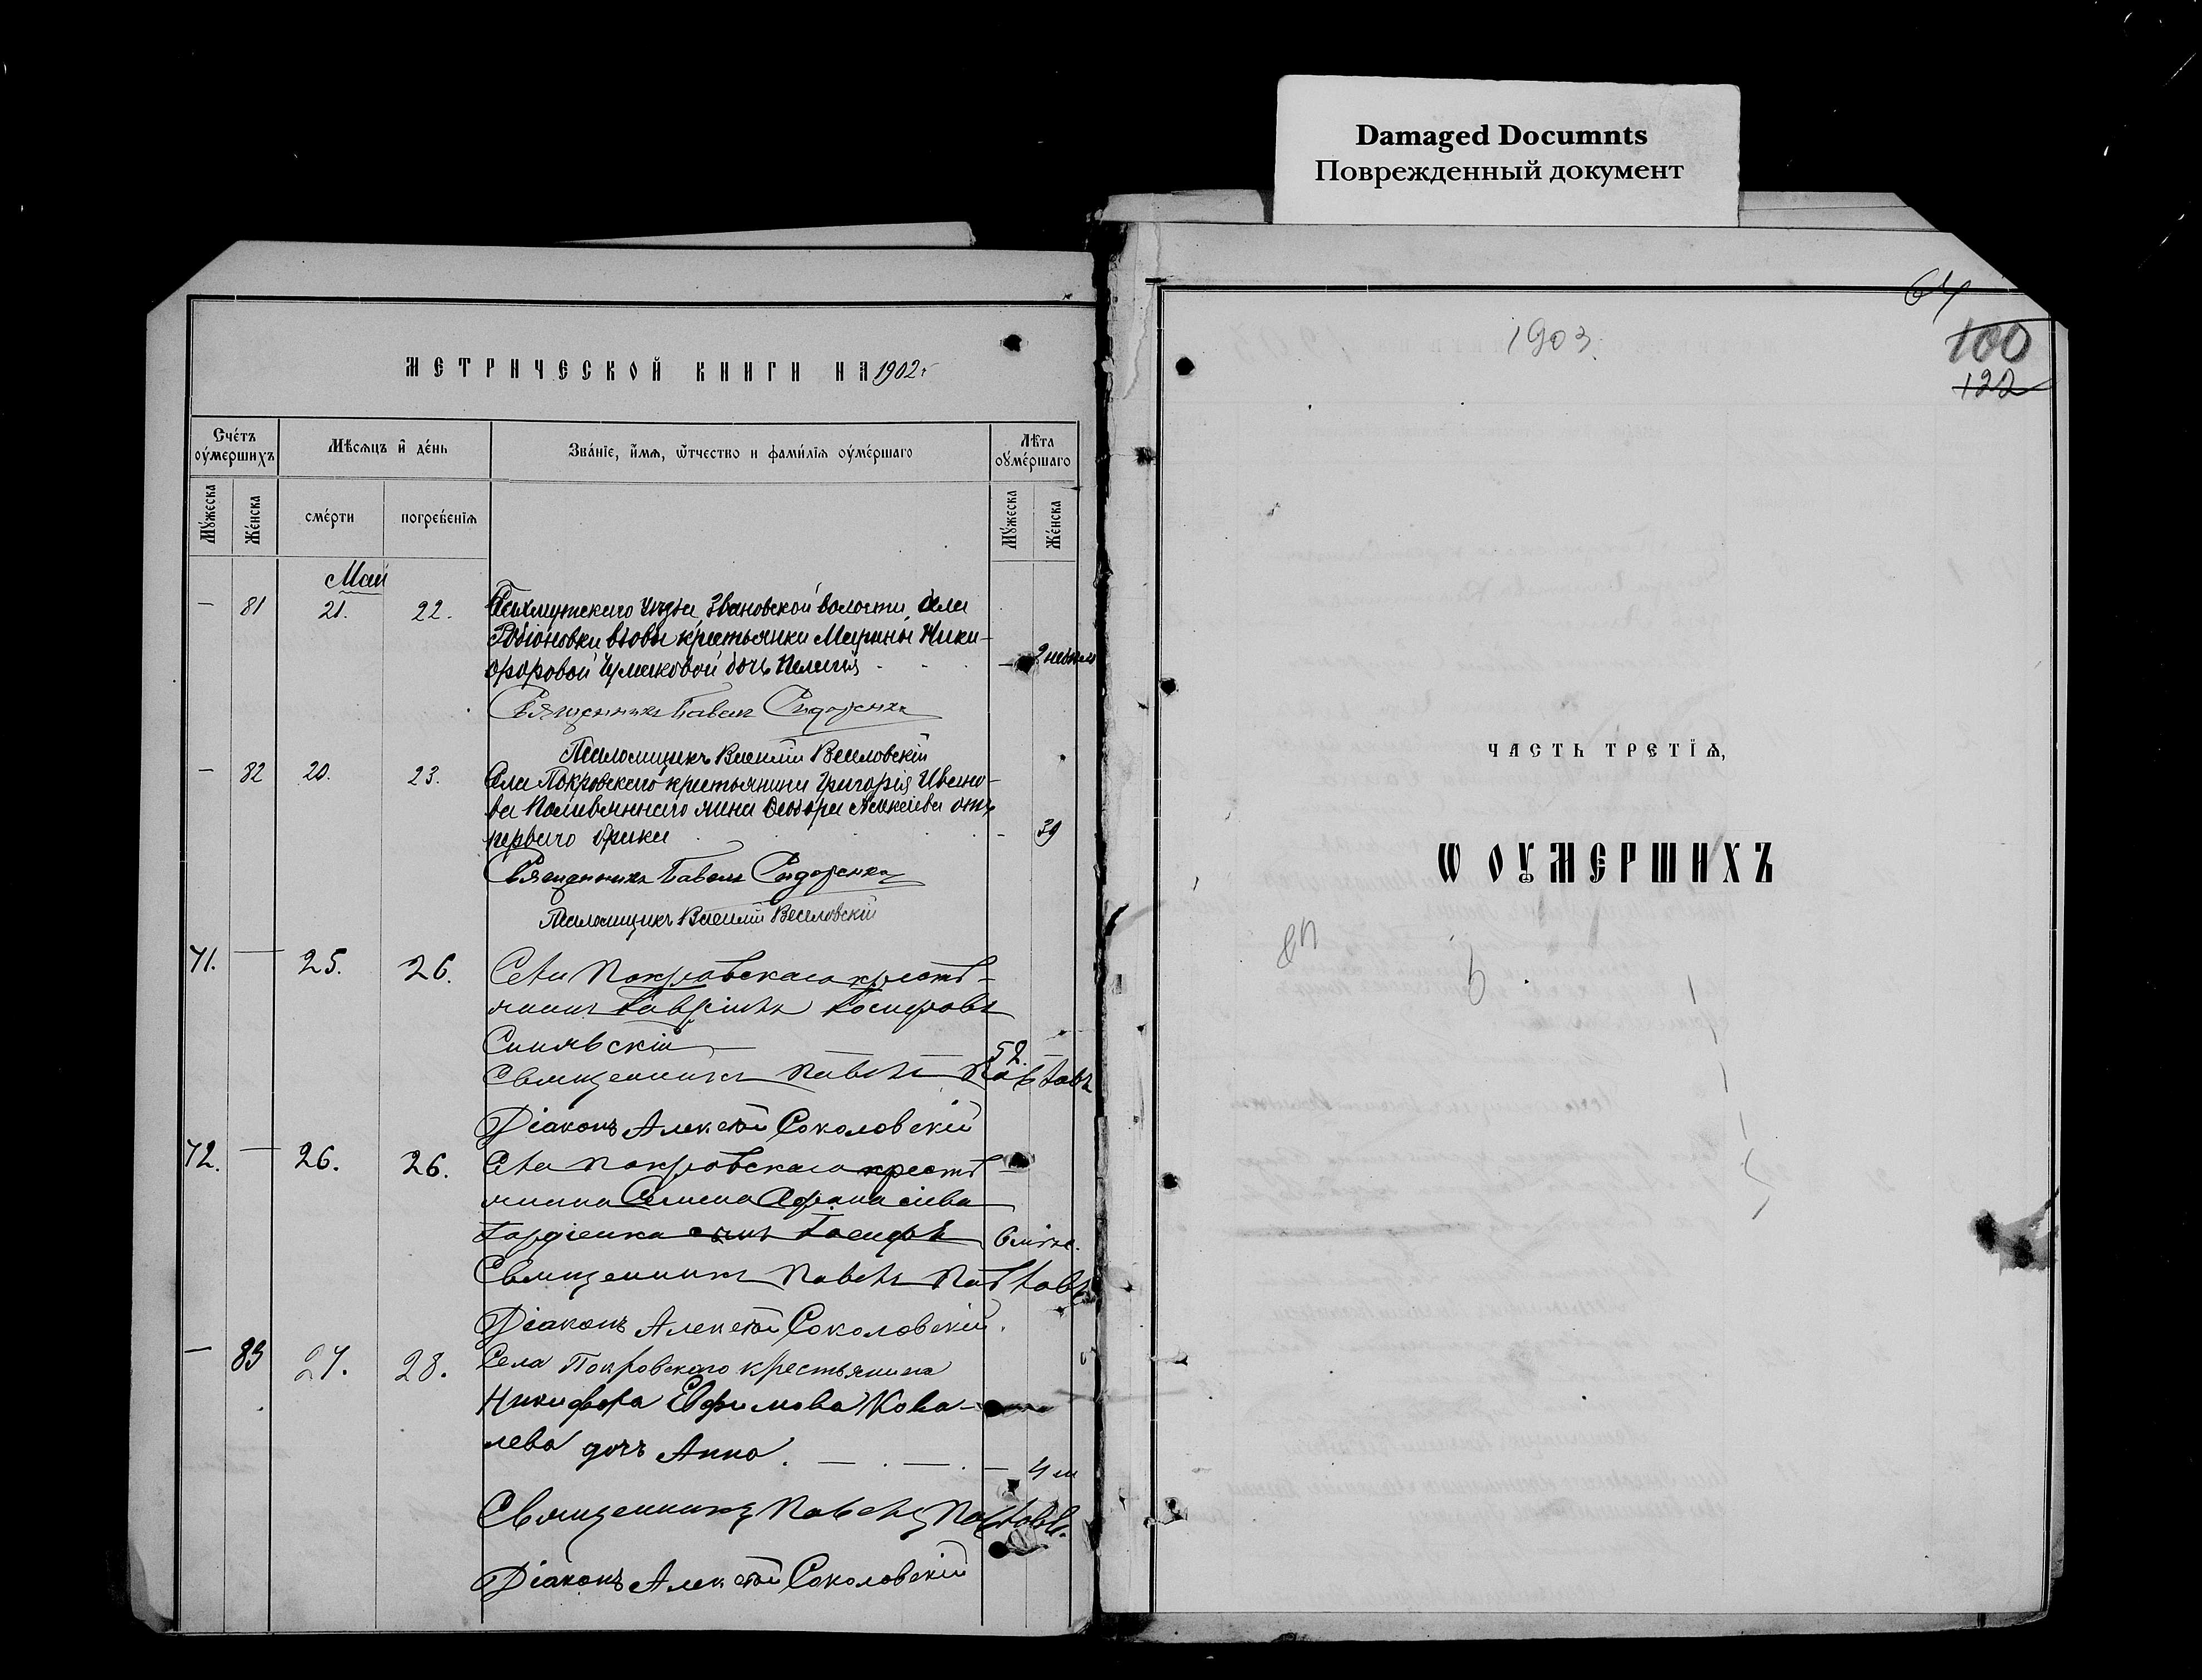 Damaged Documnts
Поврежденный документ
МЕТРИЧЕСКОЙ КНИГИ НА 1902 г
Счéтъ оу҆́мершихъ
Мѣсяцъ и҆ дéнь
Звáнїе, и҆́мѧ, ѻ҆́тчество и фамѝлїѧ оу҆мéршаго
Лѣ́та оу҆мéршаго
Мꙋ́жеска
Жéнска
смéрти
погребéнїѧ
Мꙋ́жеска
Жéнска
Май
— 81 21. 22. Бахмутскаго уѣзда, Звановской волости, села
Родіоновки вдовы крестьянки Марины Ники-
форовой Чумаковой дочь Пелагія — 2 недѣли
Священникъ Павелъ Сидоренко
Псаломщикъ Василій Веселовскій
— 82 20. 23. Села Покровскаго крестьянина Григорія Ивано-
ва жена Ѳеодора Алексіева отъ
перваго брака - 39
Священникъ Павелъ Сидоренко
Псаломщикъ Василій Веселовскій
71. — 25. 26. Села Покровскаго кресть-
янинъ Гавріилъ Іосифовъ
Синявскій — 52.
Священникъ Павелъ
Діаконъ Алексѣй Соколовскій
72. — 26. 26. Села Покровскаго кресть-
янина Семена Афанасіева
Гордіенка сынъ Іосифъ 6 мѣс.
Священникъ Павелъ
Діаконъ Алексѣй Соколовскій.
— 83 27. 28. Села Покровскаго крестьянина
Никифора Евфимова Кова-
лева дочь Анна. — . — . — 4 м
Священникъ Павелъ
Діаконъ Алексѣй Соколовскій
64
1903.
100
122
ЧАСТЬ ТРЕТЇѦ,
Ѡ ОУМЕРШИХЪ